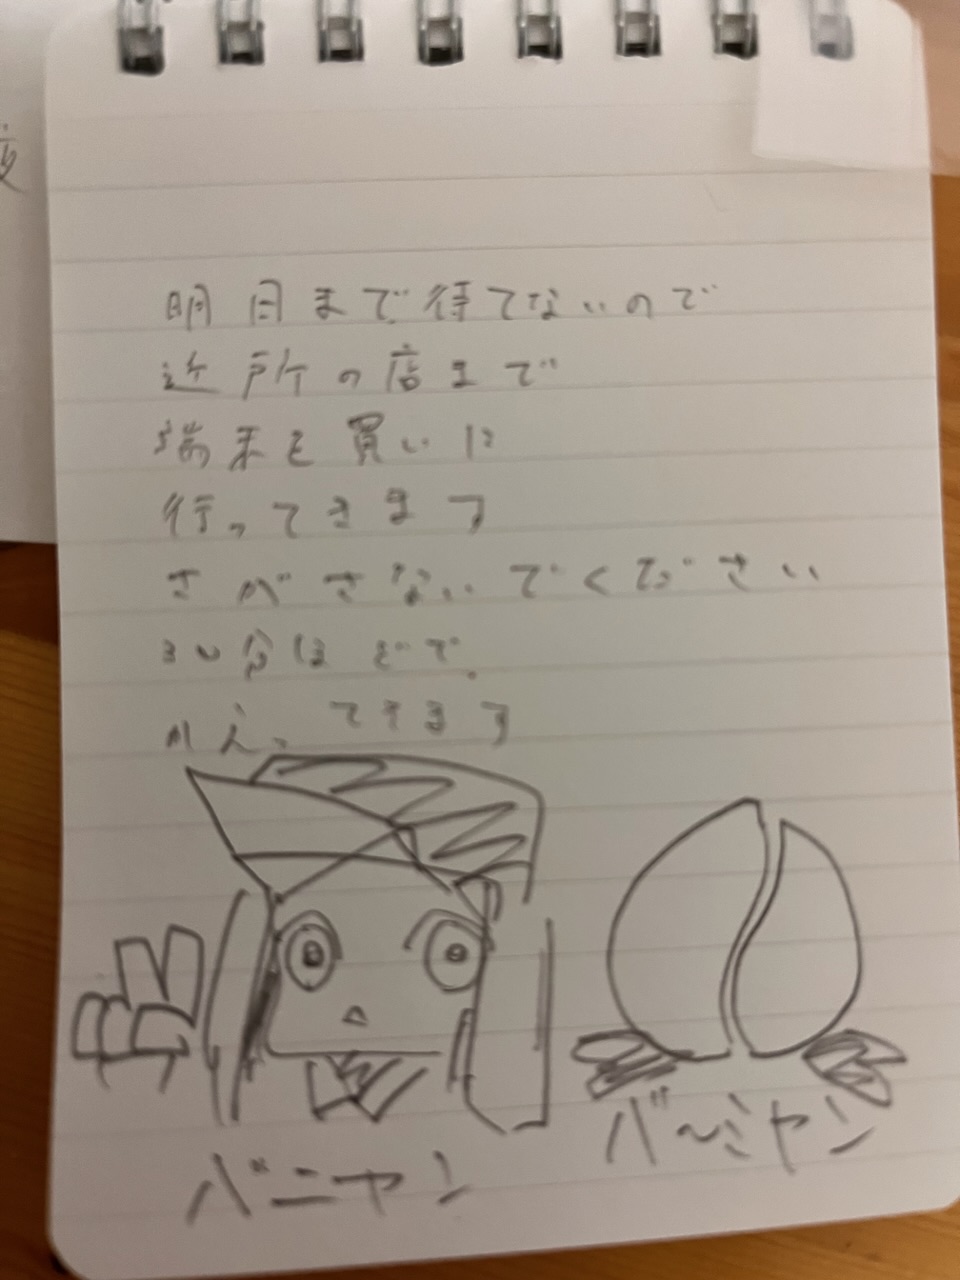 明日まで待てないので
近所の店まで
端末を買いに
行ってきます
さがさないでください
30分ほどで
かえってきます
バニヤン
バーミヤン